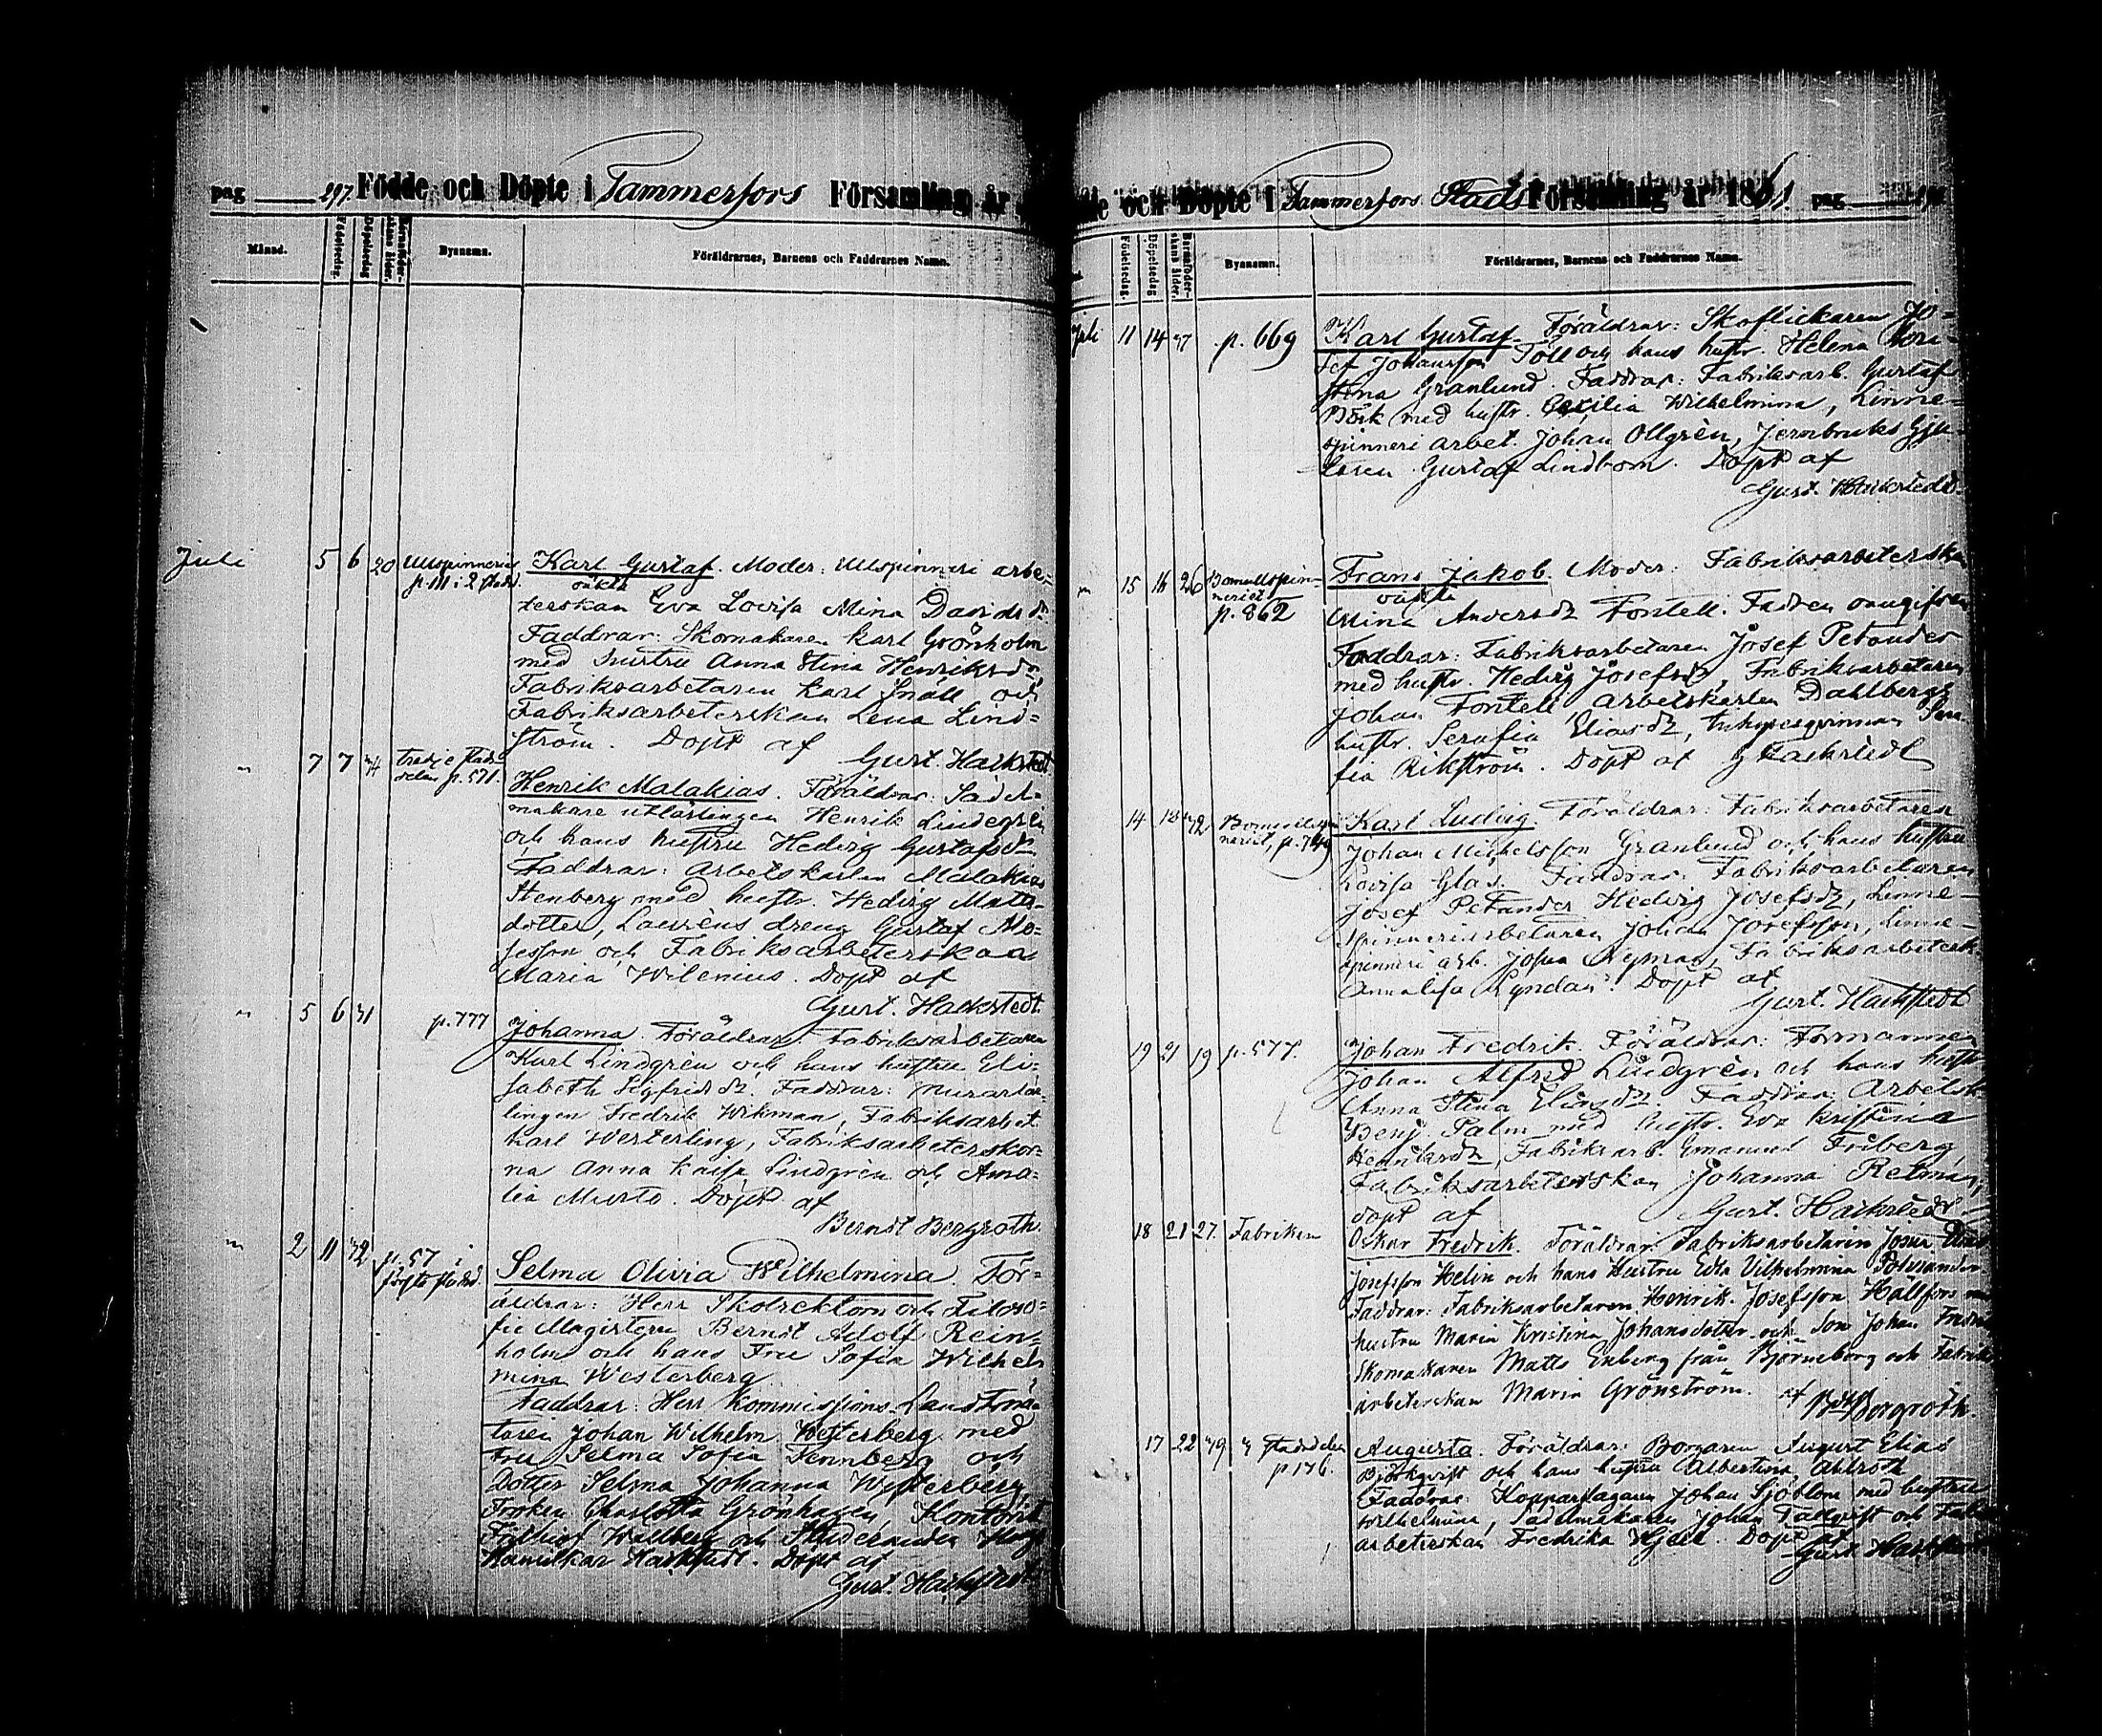 pag 297. Födde och Döpte i Tammerfors Församling år
Månad. Födelsedag. Döpelsedag Barnaföderskans ålder. Bynamn. Föräldrarnes, Barnens och Faddrarnes Namn.
Juli 5 6 20 Ullspinneriet p. 111 i 2 stads.
Karl Gustaf. Moder: Ullspinneri arbe-
oäkta
terskan Eva Lovisa Mina Davidsdr
Faddrar: Skomakaren Karl Grönholm
med hustru Anna Stina Henriksdr
Fabriksarbetaren Karl Snäll och
Fabriksarbeterskan Lena Lind-
ström. Döpt af
Gust. Hackstedt
" 7 7 34 tredje stads-
delen p. 571.
Henrik Malakias. Föräldrar: Sadel-
makare utlärlingen Henrik
och hans hustru Hedvig Gustafsdr
Faddrar: Arbetskarlen Malakias
Stenberg med hustr. Hedvig Matts-
dotter, Lauréns dreng Gustaf Mo-
sesson och Fabriksarbeterskan
Maria Wilenius. Döpt af
Gust. Hackstedt.
" 5 6 31 p. 777
Johanna. Föräldrar: Fabriksarbetaren
Karl Lindgrén och hans hustru Eli-
sabeth Sigfridsdr. Faddrar: Murarlär-
lingen Fredrik Wikman, Fabriksarbet.
Karl Westerling, Fabriksarbeterskor-
na Anna Kajsa Lindgrén och Ama-
lia Murto. Döpt af
Berndt Bergroth.
" 2 11 32 p. 57 i
första stadsd.
Selma Olivia Wilhelmina. För-
äldrar: Herr Skolrektorn och Filoso-
fie Magistern Berndt Adolf Rein-
holm och hans Fru Sofia Wilhel-
mina Westerberg
Faddrar: Herr Kommissions Landtmä-
taren Johan Wilhelm Westerberg med
fru Selma Sofia Tennberg och
Dotter Selma Johanna Westerberg,
Fröken Charlotta Grönhagen, Kontorist
Wallberg och Studeranden
Hamilkar Hackstedt. Döpt af
Gust. Hackstedt
och Döpte i Tammerfors Stads Församling år 1861 pag
Födelsedag. Döpelsedag Barnaföderskans ålder. Bynamn. Föräldrarnes, Barnens och Faddrarnes Namn.
Juli 11 14 37 p. 669
Karl Gustaf. Föräldrar: Skoflickaren Jo-
sef Johansson Töll och hans hustr. Helena Kri-
stina Granlund. Faddrar: Fabriksarb. Gustaf
Björk med hustr. Cecilia Wilhelmina, Linne-
spinneri arbet. Johan Ollgrén, Jernbruks Gju-
taren Gustaf Lindbom. Döpt af
Gust. Hackstedt.
" 15 16 26 Bomullspin-
neriet
p. 862
Frans Jakob. Moder: Fabriksarbeterskan
oäkta
Mina Andersdr Fontell. Fadren ouppgifven
Faddrar: Fabriksarbetaren Josef Petander
med hustr. Hedvig Josefsdr, Fabriksarbetaren
Johan Fontell Arbetskarlen Dahlbergs
hustr. Serafia Eliasdr, Inhysesqvinnan So-
fia Rikström. Döpt af G Hackstedt
14 18 32 Bomullsspin-
neriet, p. 749
Karl Ludvig. Föräldrar: Fabriksarbetaren
Johan Mickelsson Granlund och hans hustru
Lovisa Glad. Faddrar: Fabriksarbetaren
Josef Petander Hedvig Josefsdr, Linne-
spinneriarbetaren Johan Josefsson, Linne-
spinneri arb. Josua Nyman, Fabriksarbetersk.
Annalisa Ryndau. Döpt af
Gust. Hackstedt
19 21 19 p. 577.
Johan Fredrik. Föräldrar: Formannen
Johan Alfred Lindgrén och hans hustr
Anna Stina Eliasdr. Faddrar: Arbetsk.
Benj. Palm med hustr. Eva Kristina
Henriksdr, Fabriksarb. Emanuel Friberg
Fabriksarbeterskan Johanna Relman,
döpt af Gust. Hackstedt
18 21 27. Fabriken
Oskar Fredrik. Föräldrar: Fabriksarbetaren Josua
Josefsson Helin och hans Hustru Edla Vilhelmina
Faddrar: Fabriksarbetaren Henrik Josefsson Hällfors med
hustru Maria Kristina Johansdotter och Son Johan Fredrik
Skomakaren Matts Enberg från Björneborg och Fabriks
arbeterskan Maria Grönström. af
Bdt Bergroth.
17 22 39 4 stadsdelen
p. 176.
Augusta. Föräldrar: Borgaren August Elias
Björkqvist och hans hustru Albertina Ahlroth
Faddrar: Kopparslagaren Johan Sjöblom med hustru
Wilhelmina, Sadelmakaren Johan Tallqvist och Fabriks
arbeterskan Fredrika Hjelt. Döpt af
Gust. Hackstedt